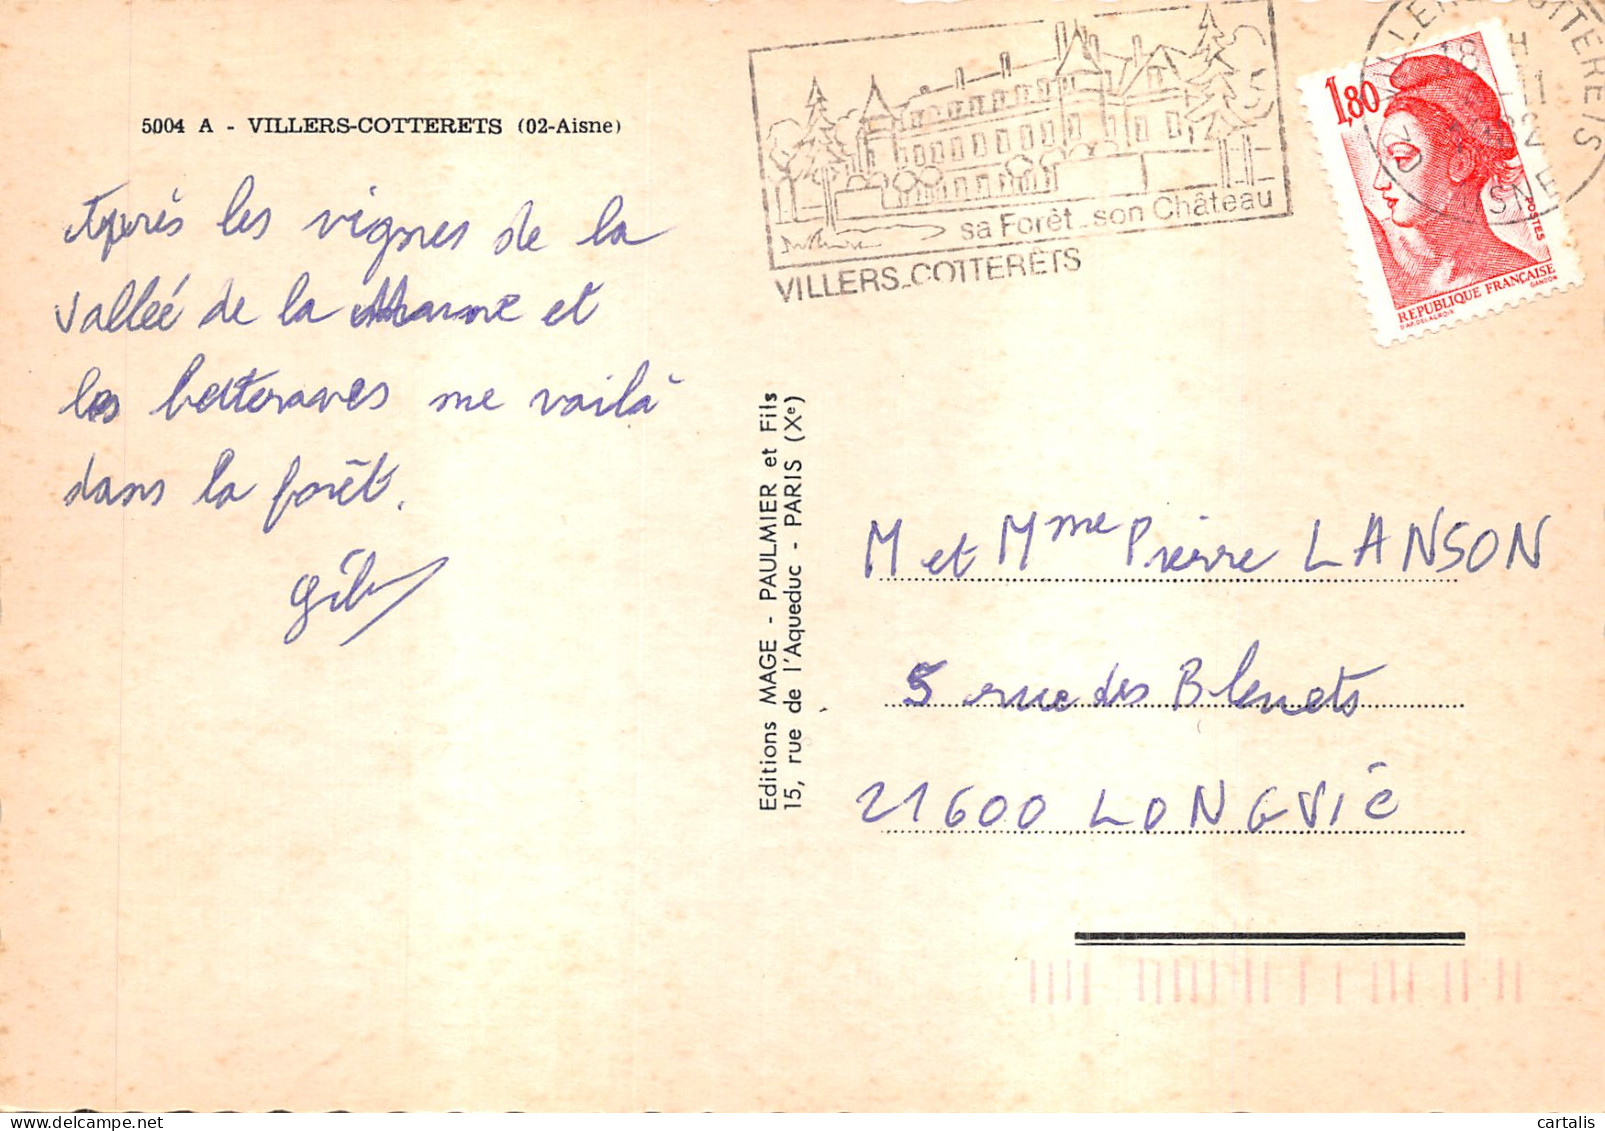 5004 A - VILLERS-COTTERETS (02-Aisne)
Après les vignes de la
vallée de la Marne et
les betteraves me voilà
dans la forêt.
sa Forêt - son Château
VILLERS-COTTERÊTS
18 H
AISNE
1,80
POSTES
REPUBLIQUE FRANÇAISE
D'AP. DELACROIX GANDON
Editions MAGE - PAULMIER et Fils
15, rue de l'Aqueduc - PARIS (Xe)
M et Mme Pierre LANSON
5 rue des Bleuets
21600 LONGVIC
cartalis